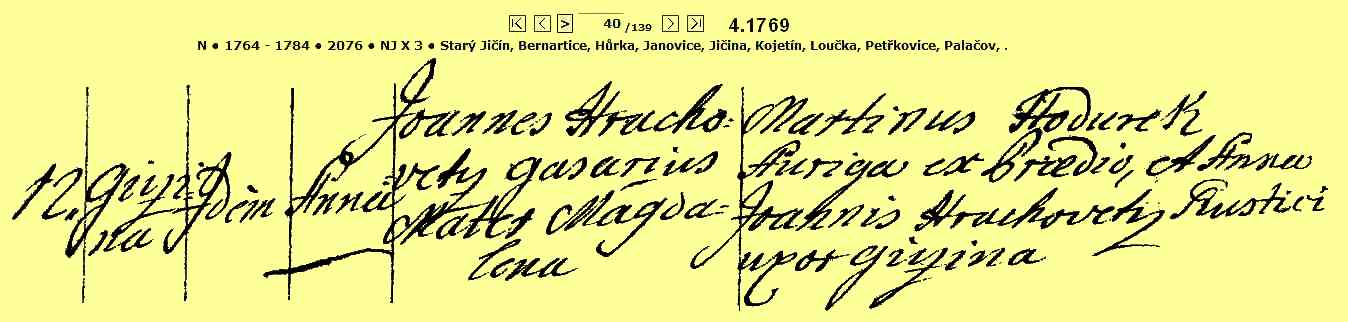 40 /139 4.1769
N ● 1764 - 1784 ● 2076 ● NJ X 3 ● Starý Jičín, Bernartice, Hůrka, Janovice, Jičina, Kojetín, Loučka, Petřkovice, Palačov, .
Joannes Hracho= Martinus Hodurek
12. Giżi= Idem Anna vetz gasarius Auriga ex Prædio, et Anna
na Mater Magda= Joannis Hrachovetz Rustici
lena uxor Giżina